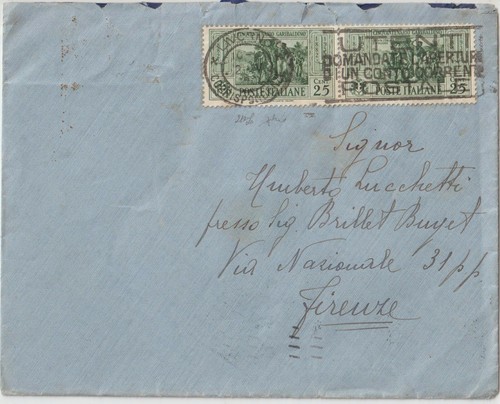 CINQUANTENARIO GARIBALDINO
POSTE ITALIANE
CENT. 25
POSTE ITALIANE
25
DOMANDATE L'APERTURA
DI UN CONTO CORRENTE
Signor
Umberto Lucchetti
presso Sig. Brillet Buyet
Via Nazionale 31 pp
Firenze